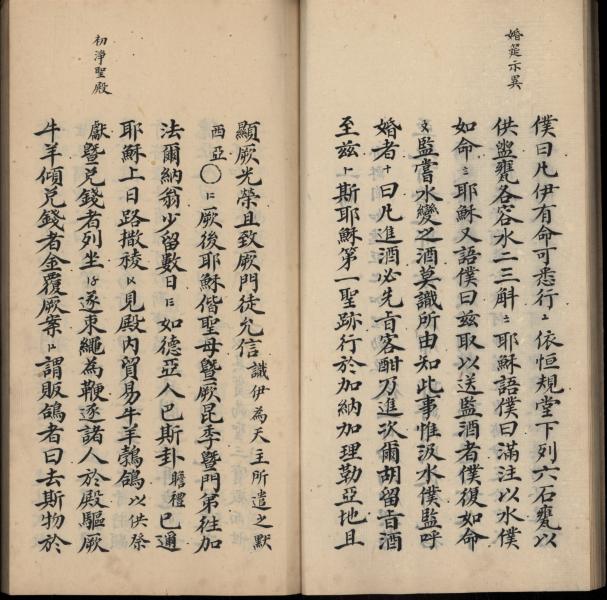 婚筵示異
僕曰凡伊有命可悉行 依恒規堂下列六石甕以
供盥甕各容水二三斛 耶穌語僕曰滿注以水僕
如命 耶穌又語僕曰茲取以送監酒者僕復如命
監嘗水變之酒莫識所由知此事惟汲水僕監呼
婚者 曰凡進酒必先旨客酣乃進次爾胡留旨酒
至茲 斯耶穌第一聖跡行於加納加理勒亞地且
顯厥光榮且致厥門徒允信 識伊為天主所遣之默
西亞 〇 厥後耶穌偕聖母暨厥昆季暨門弟往加
法爾納翁少留數日 如德亞人巴斯卦 瞻禮 已通
耶穌上日路撒稜 見殿內貿易牛羊鵓鴿 以供祭
獻 暨兌錢者列坐 遂束繩為鞭逐諸人於殿驅厥
牛羊傾兌錢者金覆厥案 謂販鴿者曰去斯物於
初淨聖殿